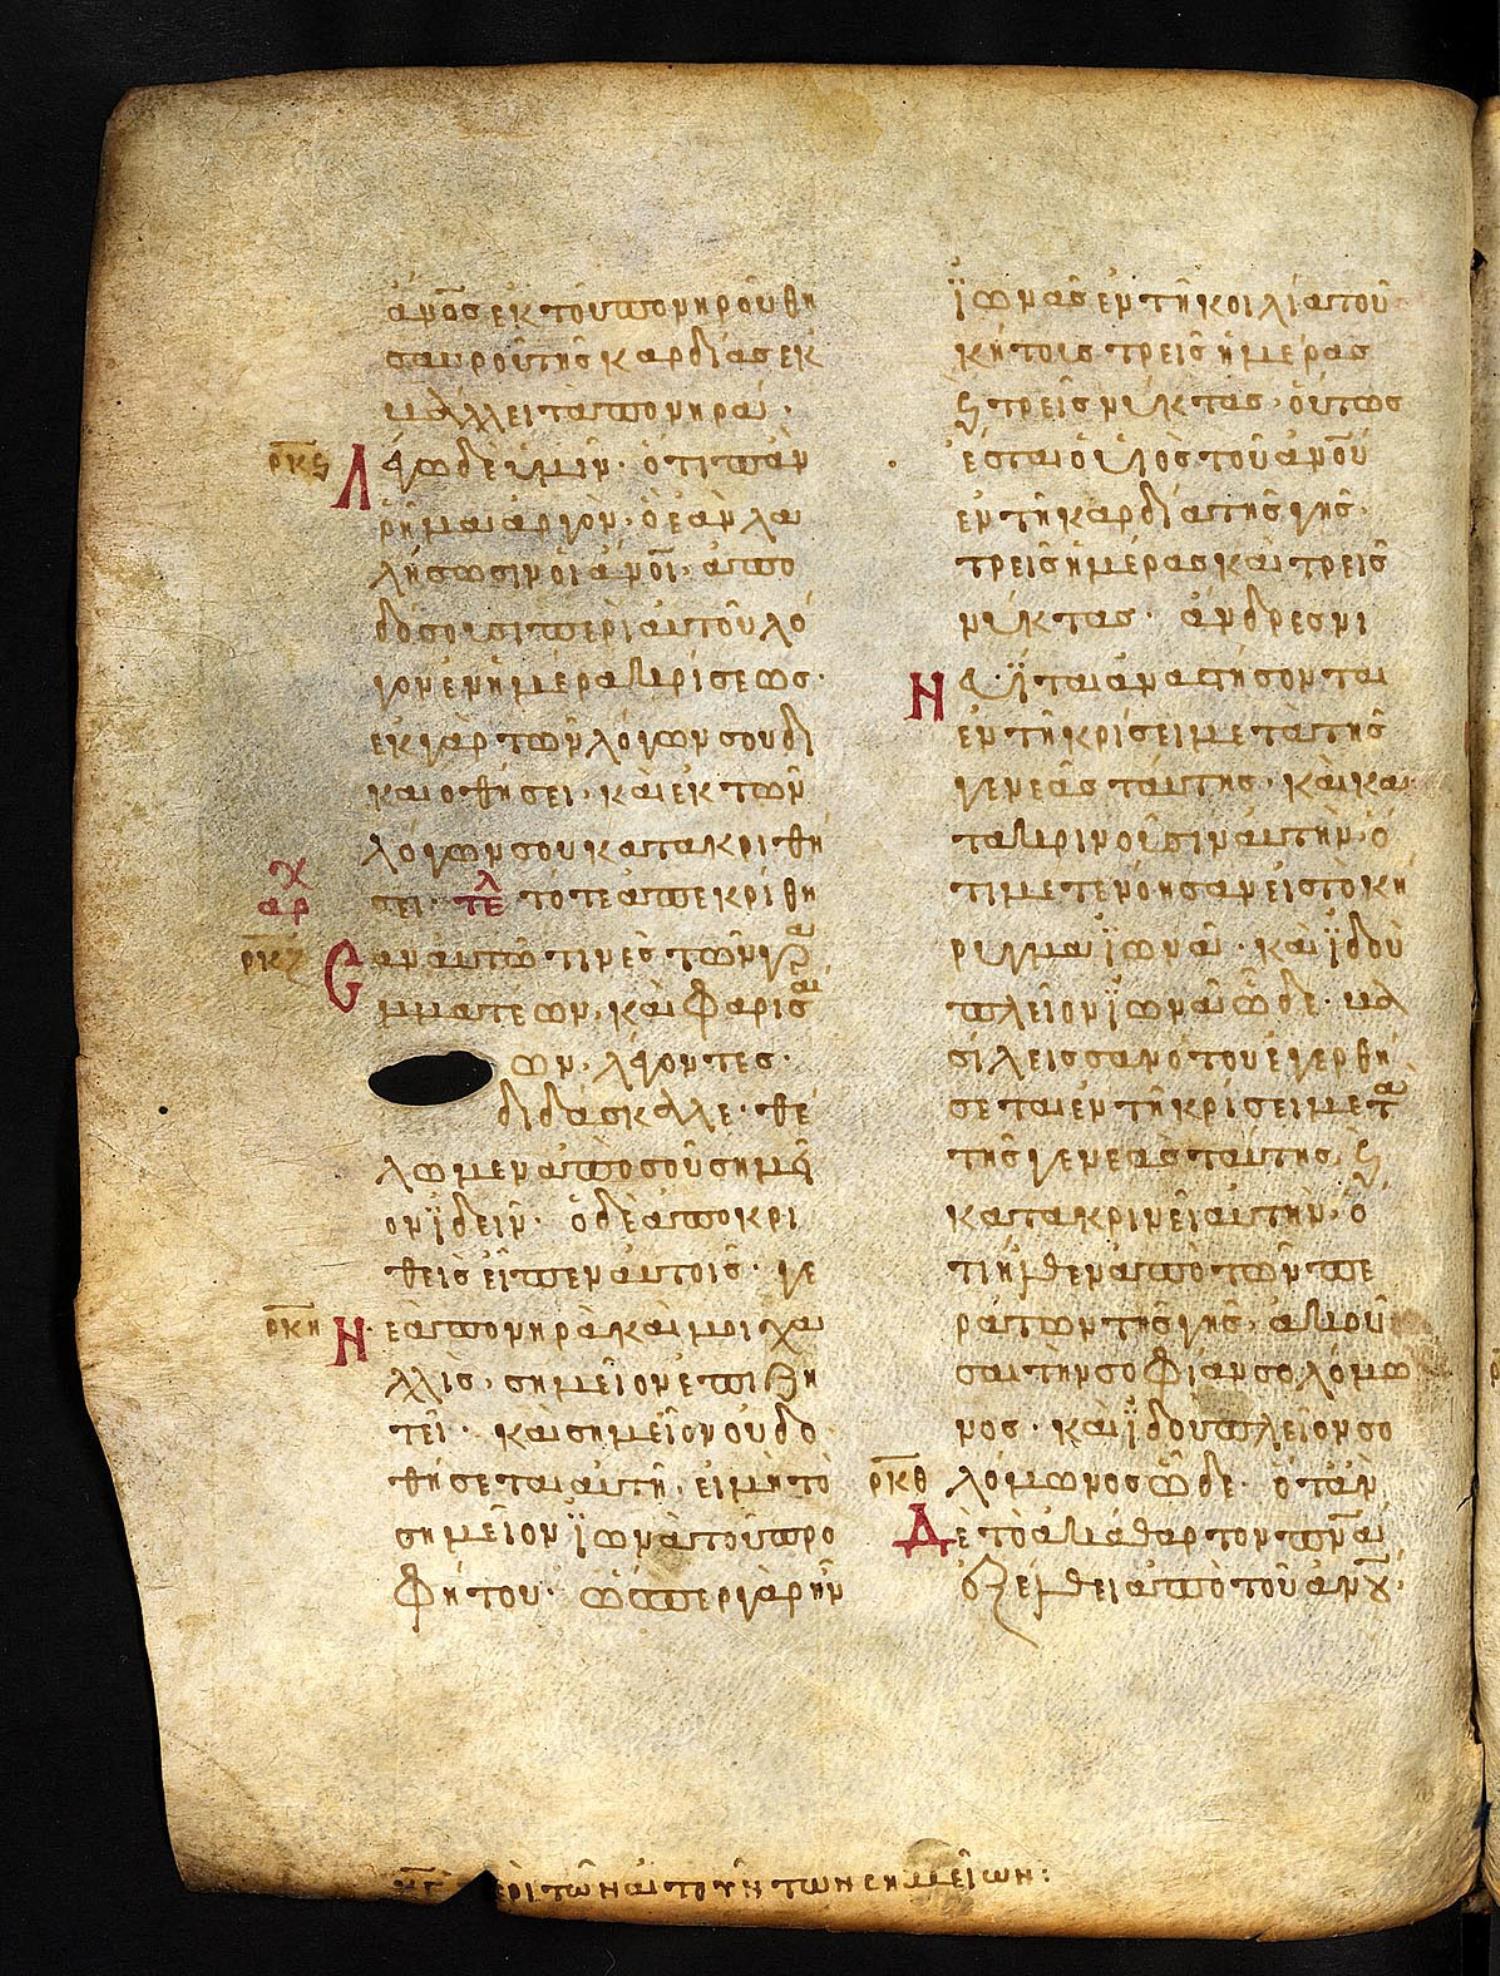 ἄνοσ ἐκ τοῦ πονηροῦ θη
σαυροῦ τῆσ καρδίασ ἐκ
βάλλει τὰ πονηρά·
ρκϛ Λέγω δὲ ὑμῖν· ὅτι πᾶν
ρῆμα ἀργὸν· ὃ ἐὰν λα
λήσωσιν οἱ ἄνοι· ἀπο
δόσουσι περὶ αὐτοῦ λό
γον ἐν ἡμέρα κρίσεωσ·
ἐκ γὰρ τῶν λόγων σου δι
καιοθήσει· καὶ ἐκ τῶν
λόγων σου κατακριθή
χ
αρ
σει· τελ τότε ἀπεκρίθη
ρκζ Cαν αὐτῶ τινὲσ τῶν γρα
μματέων· καὶ Φαρισαί
ων· λέγοντεσ·
διδάσκαλλε· θέ
λωμεν ἀπὸ σοῦ σημεῖ
ον ϊδεῖν· ὁ δὲ ἀποκρι
θεὶσ εἶπεν αὐτοῖσ· γε
ρκη Νεὰ πονηρὰ καὶ μοιχα
λλὶσ· σημεῖον ἐπιζη
τεῖ· καὶ σημεῖον οὐ δο
θήσεται αὐτῆ· εἰ μὴ τὸ
σημεῖον ϊωνᾶ τοῦ προ
φήτου· ὥσπερ γὰρ ἦν
ϊωνᾶσ ἐν τῆ κοιλία τοῦ
κήτοισ τρεῖσ ἡμέρασ
ϗ τρεῖσ νύκτασ· οὕτωσ
ἔσται ὁ υἱὸσ τοῦ ἀνου
ἐν τῆ καρδία τῆσ γῆσ·
τρεῖσ ἡμέρασ καὶ τρεῖσ
νύκτασ· ἄνδρεσ νι
Νευϊται ἀναστήσονται
ἐν τῆ κρίσει μετὰ τῆσ
γενεᾶσ ταύτησ· καὶ κα
τακρινοῦσιν αὐτὴν· ὅ
τι μετενόησαν εἰσ τὸ κή
ρυγμα ϊωνᾶ· καὶ ϊδοὺ
πλεῖον ϊωνᾶ ὧδε· βα
σίλεισσα νότου ἐγερθή
σεται ἐν τῆ κρίσει μετὰ
τῆσ γενεᾶσ ταύτησ ϗ
κατακρινεῖ αὐτὴν· ὅ
τι ἦλθεν ἀπὸ τῶν πε
ράτων τῆσ γῆσ· ἀκοῦ
σαι τὴν σοφίαν σολομω
νοσ· καὶ ϊδοὺ πλεῖον σο
ρκθ λόμωνοσ ὧδε· ὅταν
Δὲ τὸ ἀκάθαρτον πνα
ἐξέλθει ἀπὸ τοῦ ἀνου·
ερὶ τῶν αἰτούντων σημεῖων: